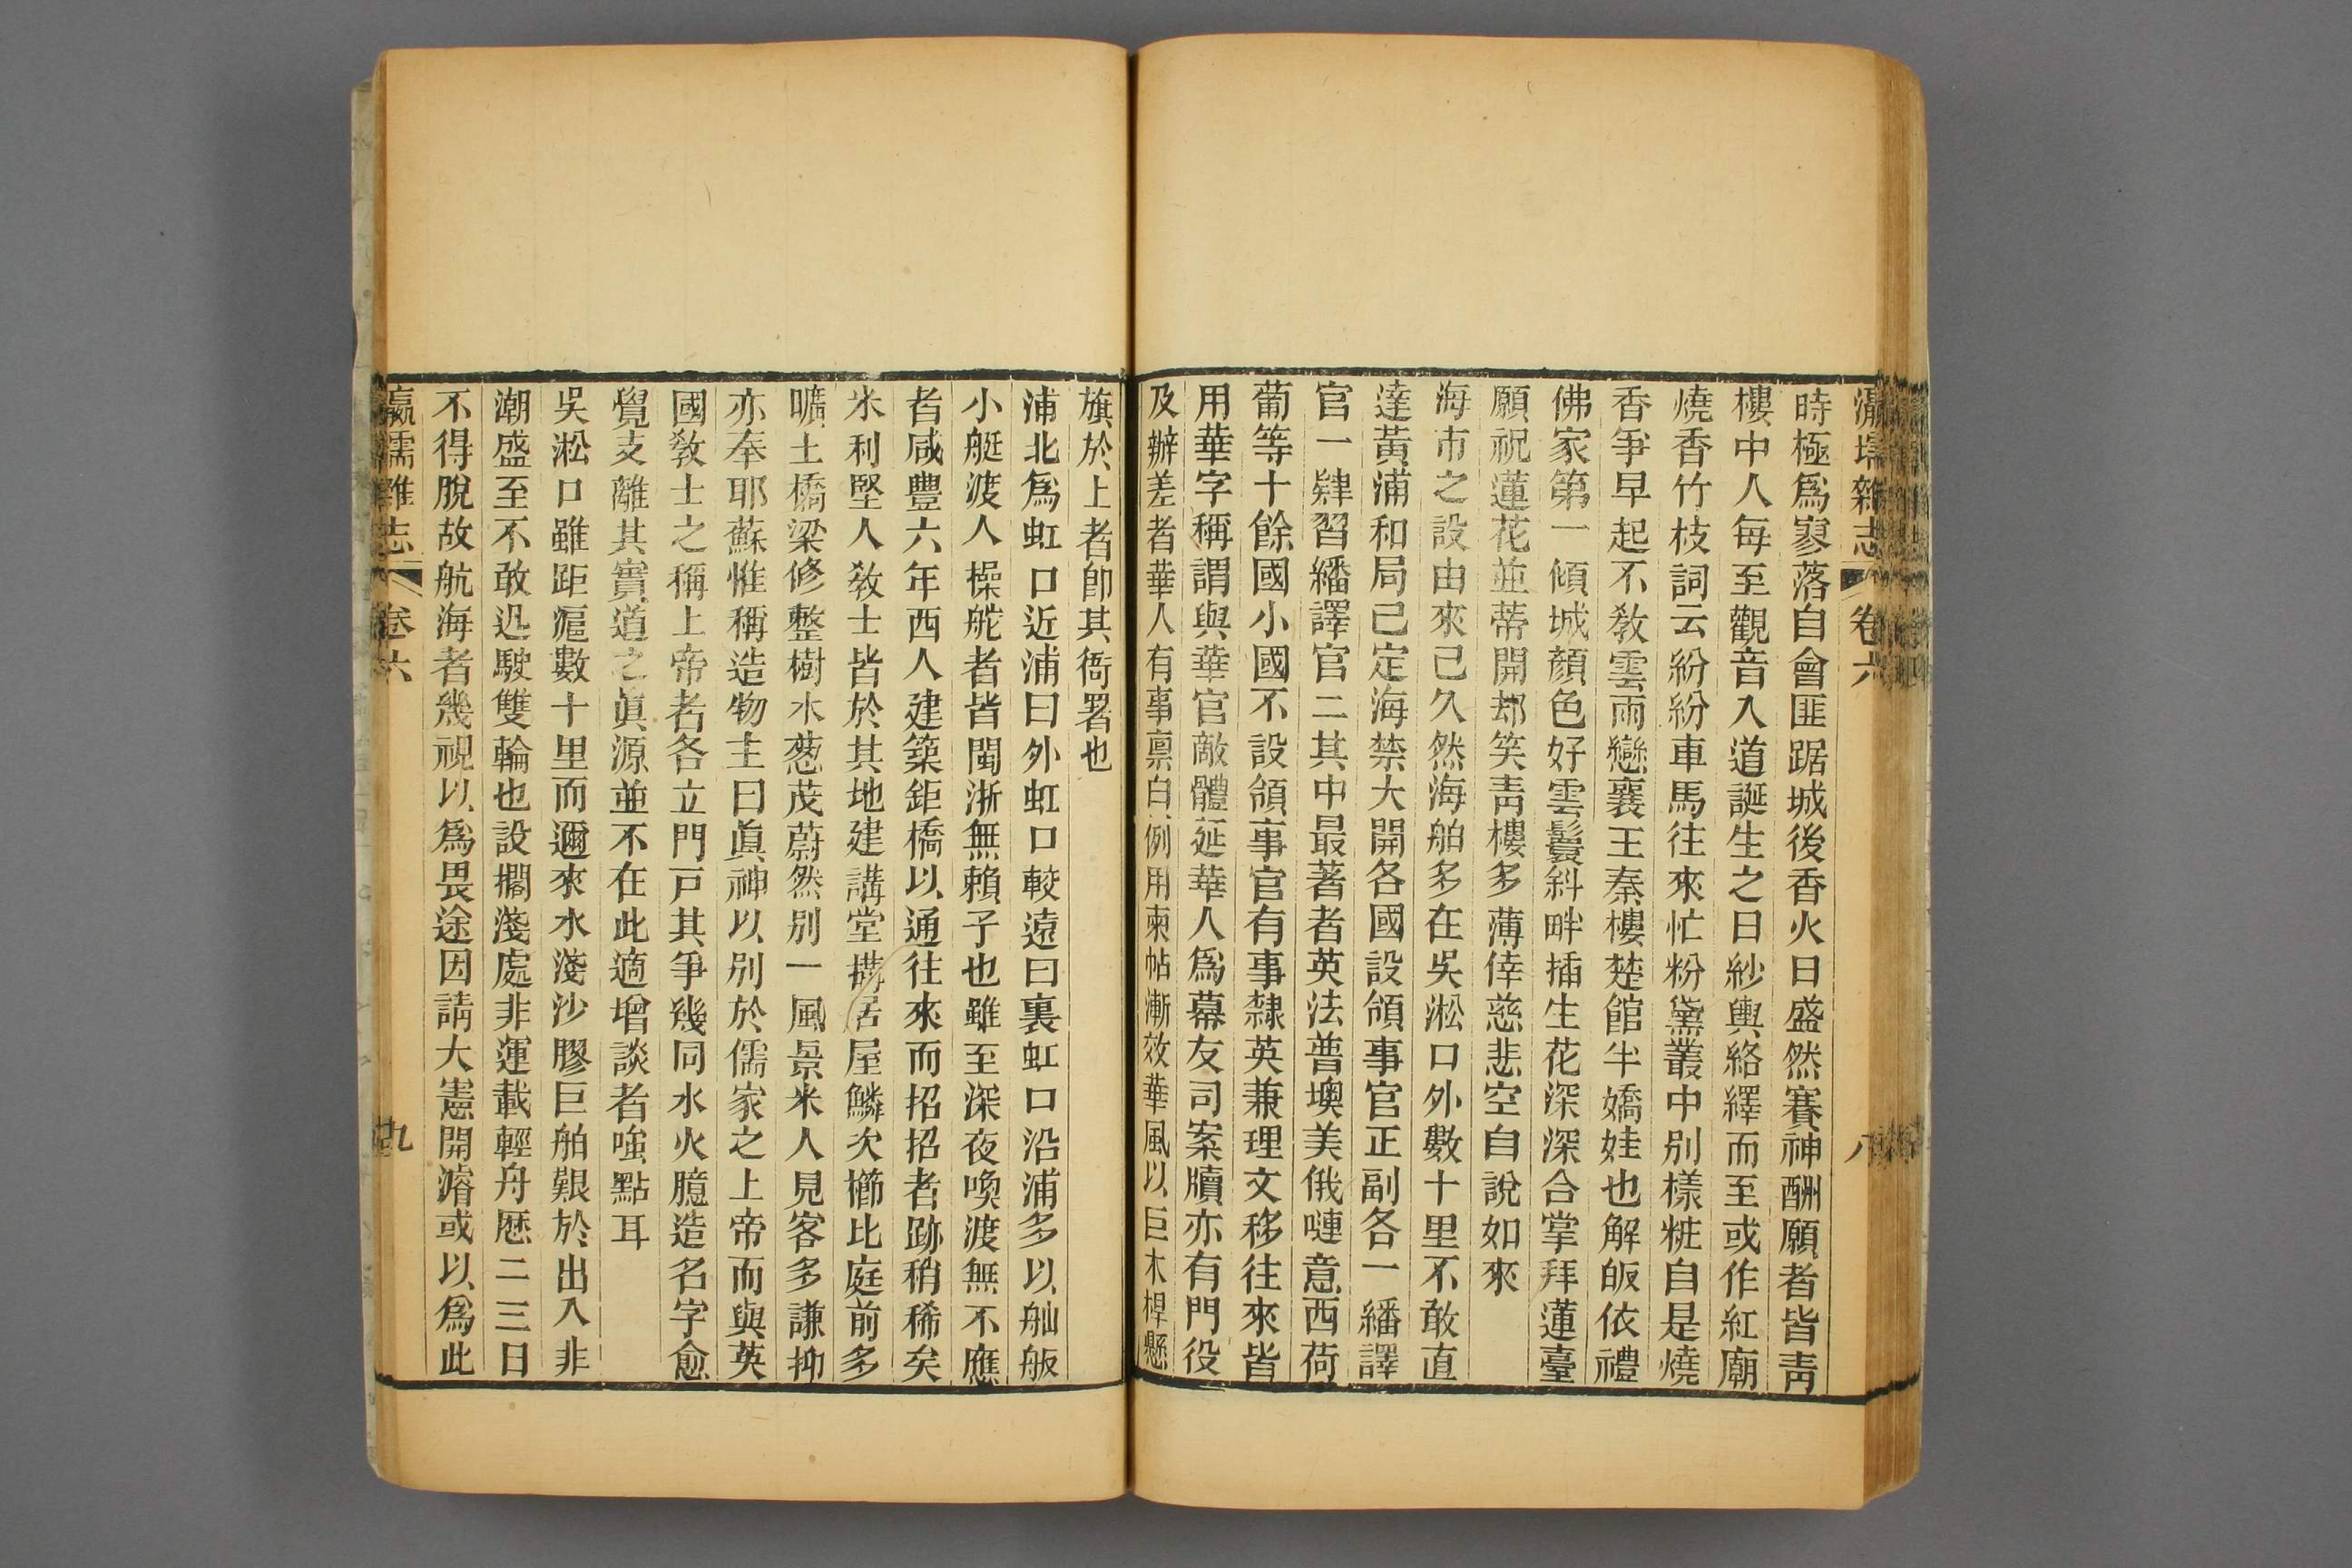 瀛壖雜志 卷六 八
時極爲寥落自會匪踞城後香火日盛然賽神酬願者皆靑
樓中人每至觀音入道誕生之日紗輿絡繹而至或作紅廟
燒香竹枝詞云紛紛車馬往來忙粉黛叢中別樣粧自是燒
香爭早起不敎雲雨戀襄王秦樓楚館半嬌娃也解皈依禮
佛家第一傾城顏色好雲鬟斜畔插生花深深合掌拜蓮臺
願祝蓮花並蒂開却笑靑樓多薄倖慈悲空自說如來
海市之設由來已久然海舶多在吳淞口外數十里不敢直
達黃浦和局已定海禁大開各國設領事官正副各一繙譯
官一肄習繙譯官二其中最著者英法普墺美俄嗹意西荷
葡等十餘國小國不設領事官有事隸英兼理文移往來皆
用華字稱謂與華官敵體延華人爲幕友司案牘亦有門役
及辦差者華人有事禀白例用柬帖漸效華風以巨木桿懸
旗於上者卽其衙署也
浦北爲虹口近浦曰外虹口較遠曰裏虹口沿浦多以舢舨
小艇渡人操舵者皆閩浙無賴子也雖至深夜喚渡無不應
者咸豐六年西人建築鉅橋以通往來而招招者跡稍稀矣
米利堅人敎士皆於其地建講堂搆居屋鱗次櫛比庭前多
曠土橋梁修整樹木葱茂蔚然別一風景米人見客多謙抑
亦奉耶蘇惟稱造物主曰眞神以別於儒家之上帝而與英
國敎士之稱上帝者各立門戸其爭幾同水火臆造名字愈
覺支離其實道之眞源並不在此適增談者嗤點耳
吳淞口雖距滬數十里而邇來水淺沙膠巨舶艱於出入非
潮盛至不敢迅駛雙輪也設擱淺處非運載輕舟歷二三日
不得脫故航海者幾視以爲畏途因請大憲開濬或以爲此
瀛壖雜志 卷六 九